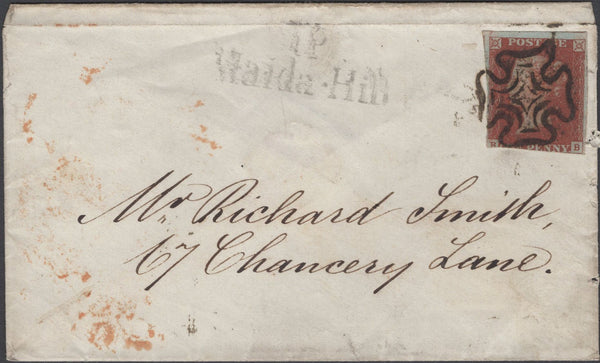 TP
Maida-Hill
POSTAGE
PENNY
B
Mr. Richard Smith,
67 Chancery Lane.